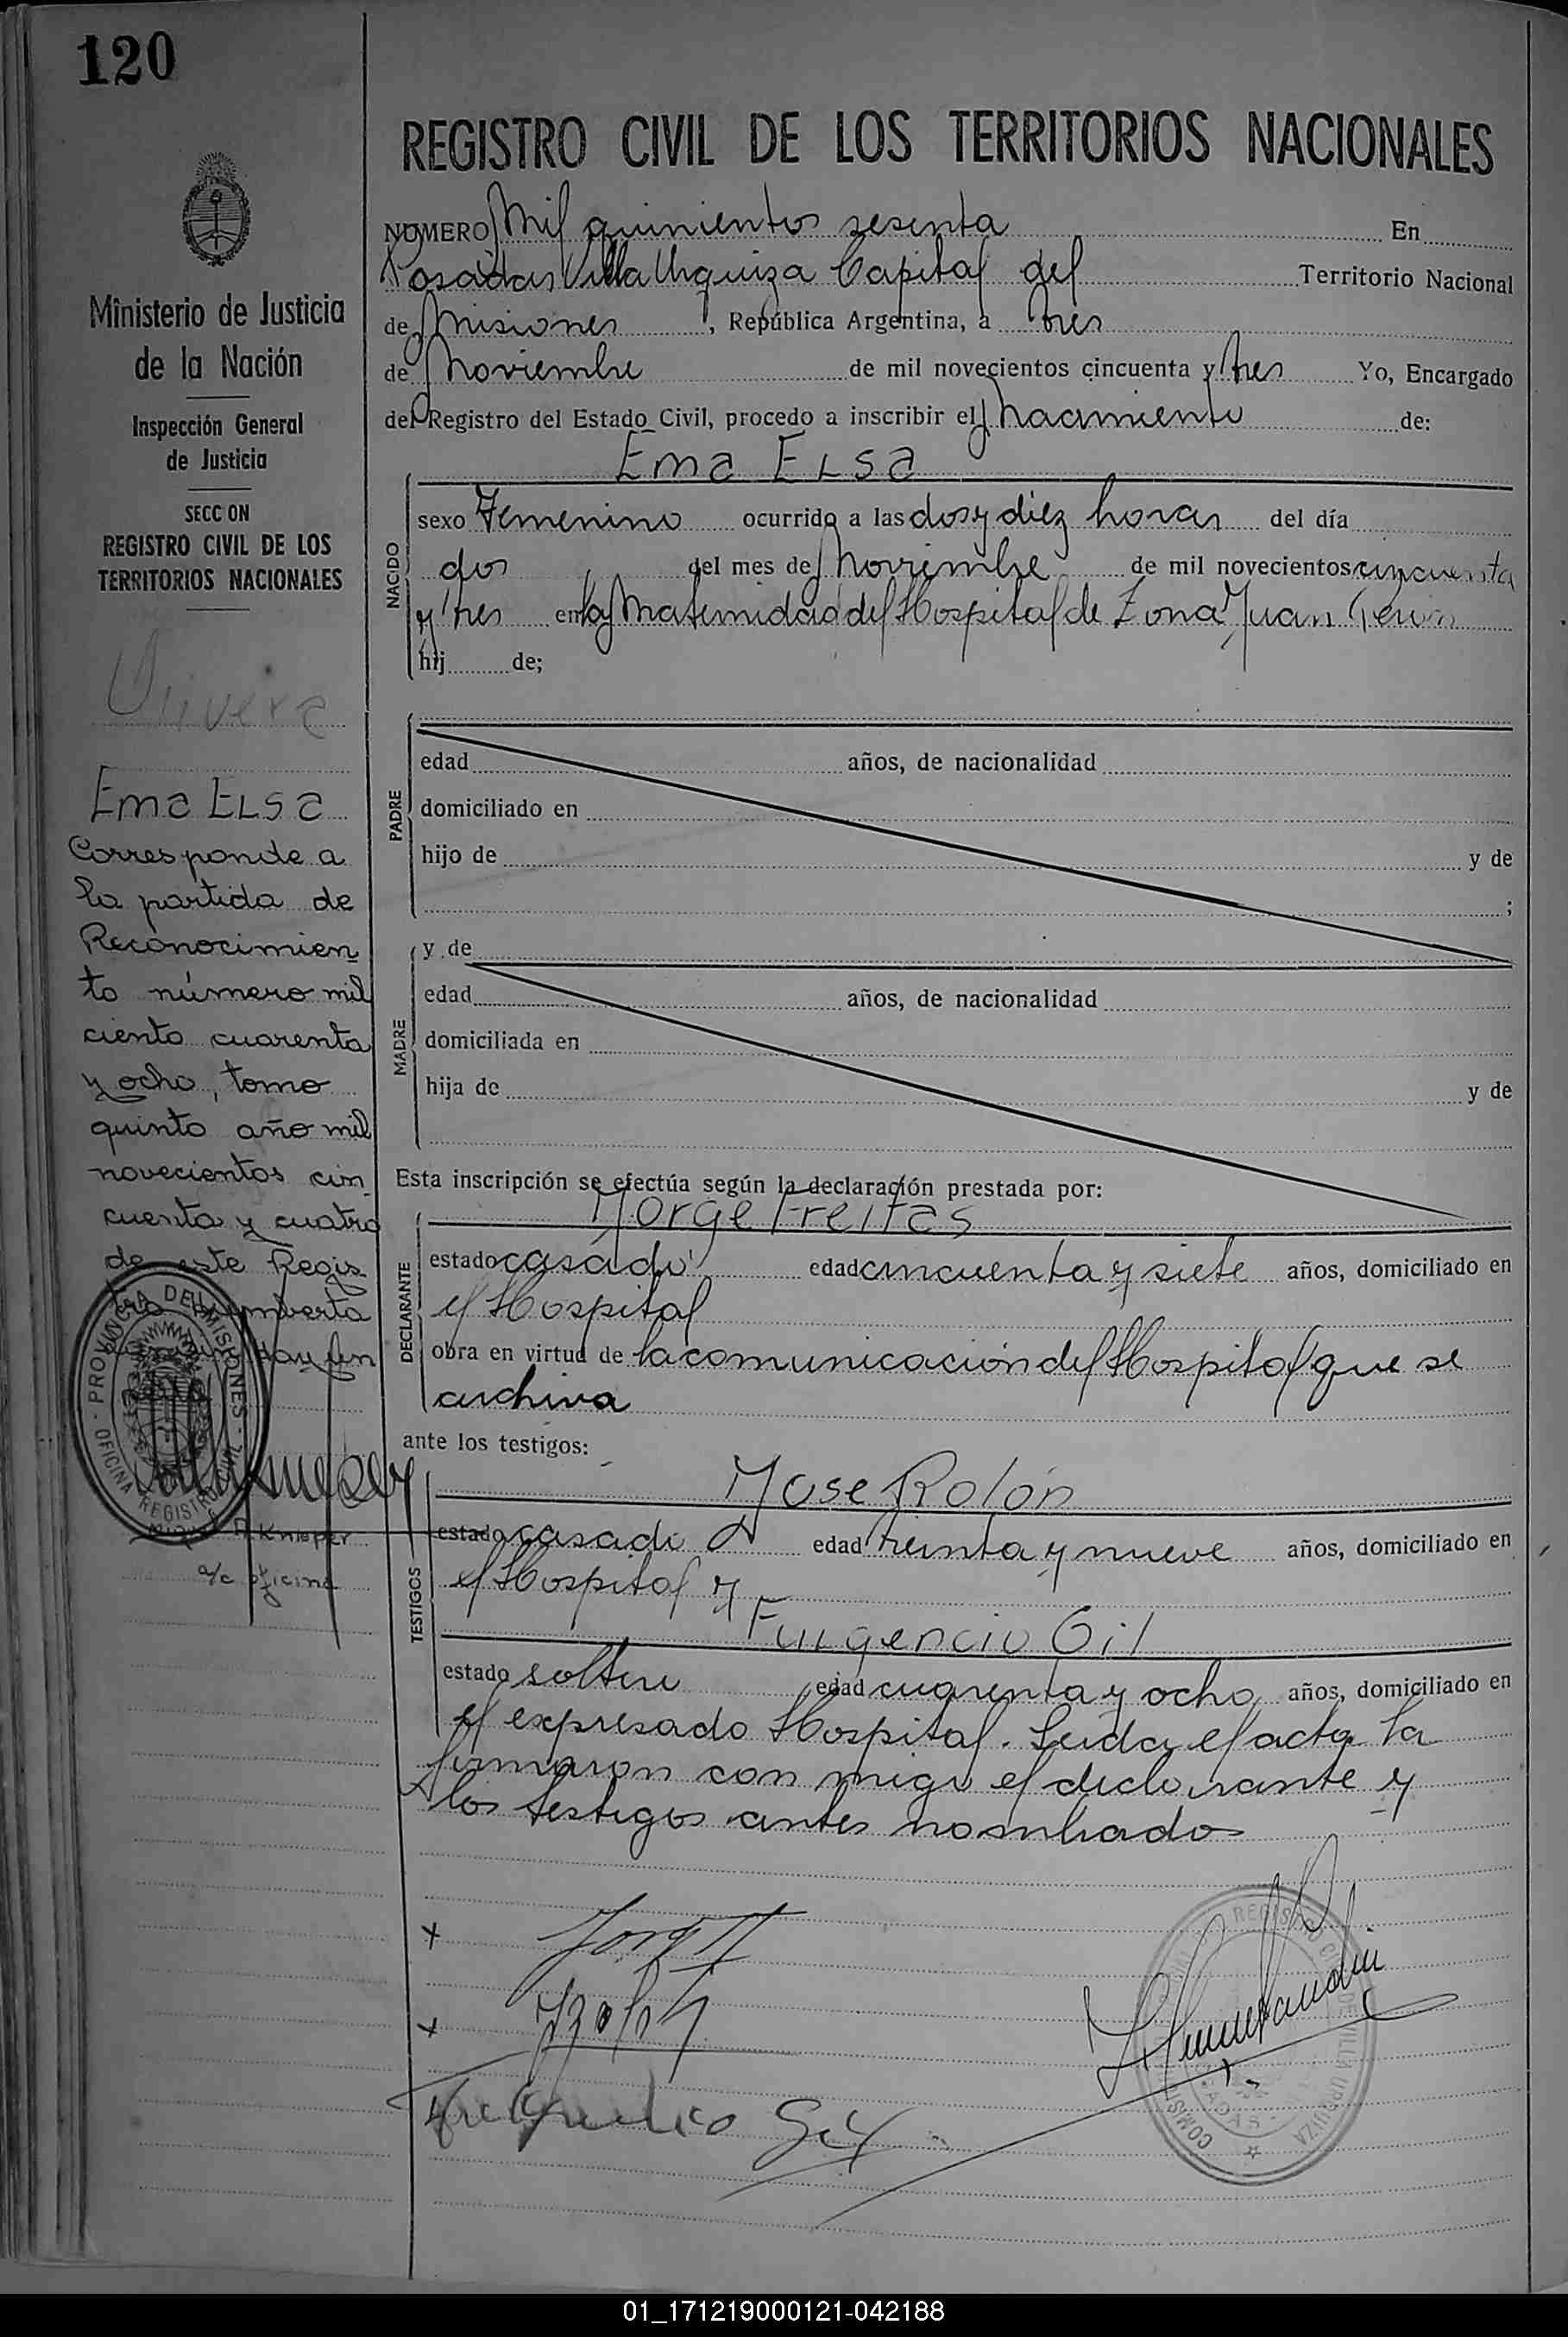 120
REGISTRO CIVIL DE LOS TERRITORIOS NACIONALES
NUMERO Mil quinientos sesenta En
Posadas Villa Urquiza Capital del Territorio Nacional
de Misiones, República Argentina, a tres
de Noviembre de mil novecientos cincuenta y tres Yo, Encargado
del Registro del Estado Civil, procedo a inscribir el Nacimiento de:
Ema Elsa
NACIDO
sexo Femenino ocurrido a las dos y diez horas del día
dos del mes de Noviembre de mil novecientos cincuenta
y tres en la Maternidad del Hospital de Zona Juan Peron
hij de;
PADRE
edad años, de nacionalidad
domiciliado en
hijo de y de
;
MADRE
y de
edad años, de nacionalidad
domiciliada en
hija de y de
Esta inscripción se efectúa según la declaración prestada por:
Jorge Freitas
DECLARANTE
estado casado edad cincuenta y siete años, domiciliado en
el Hospital
obra en virtud de la comunicación del Hospital que se
archiva
ante los testigos:
Jose Rolón
TESTIGOS
estado casado edad treinta y nueve años, domiciliado en
el Hospital y
Fulgencio Gil
estado soltero edad cuarenta y ocho años, domiciliado en
el expresado Hospital. Leida el acta la
firmaron con migo el declarante y
los testigos antes nombrados
Ministerio de Justicia
de la Nación
Inspección General
de Justicia
SECC ON
REGISTRO CIVIL DE LOS
TERRITORIOS NACIONALES
Olivera
Ema Elsa
Corresponde a
la partida de
Reconocimien
to número mil
ciento cuarenta
y ocho, tomo
quinto año mil
novecientos cin
cuenta y cuatro
de este Regis
tro
Hay un
PROVINCIA DE MISIONES
OFICINA REGISTRO CIVIL
Knieper
a/c oficina
Fulgencio Gil
REGISTRO CIVIL DE VILLA URQUIZA
01_171219000121-042188